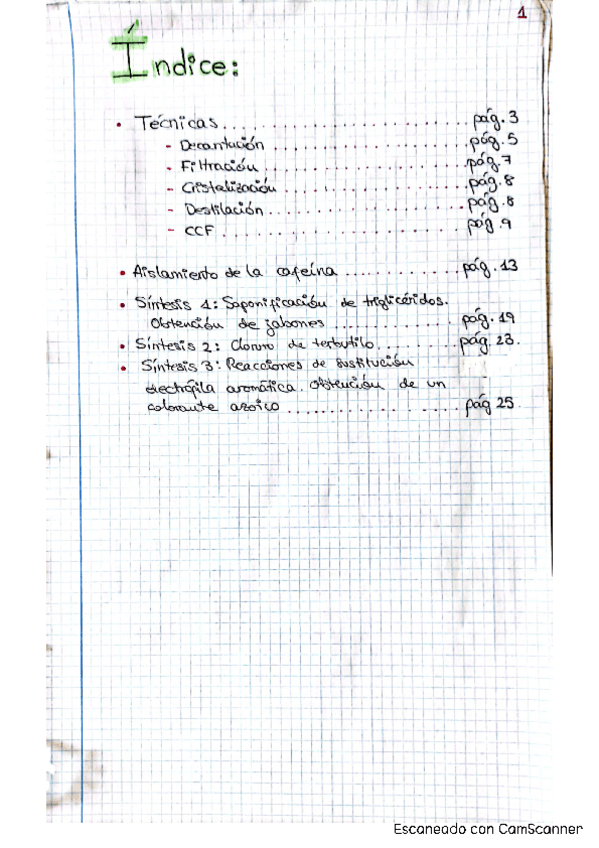 1
Índice:
• Técnicas........................pág. 3
- Decantación....................pág. 5
- Filtración.....................pág. 7
- Cristalización.................pág. 8
- Destilación....................pág. 8
- CCF............................pág. 9
• Aislamiento de la cafeína............pág. 13
• Síntesis 1: Saponificación de triglicéridos.
Obtención de jabones............pág. 19
• Síntesis 2: Cloruro de terbutilo..........pág 23.
• Síntesis 3: Reacciones de sustitución
electrófila aromática. Obtención de un
colorante azoico....................pág 25.
Escaneado con CamScanner